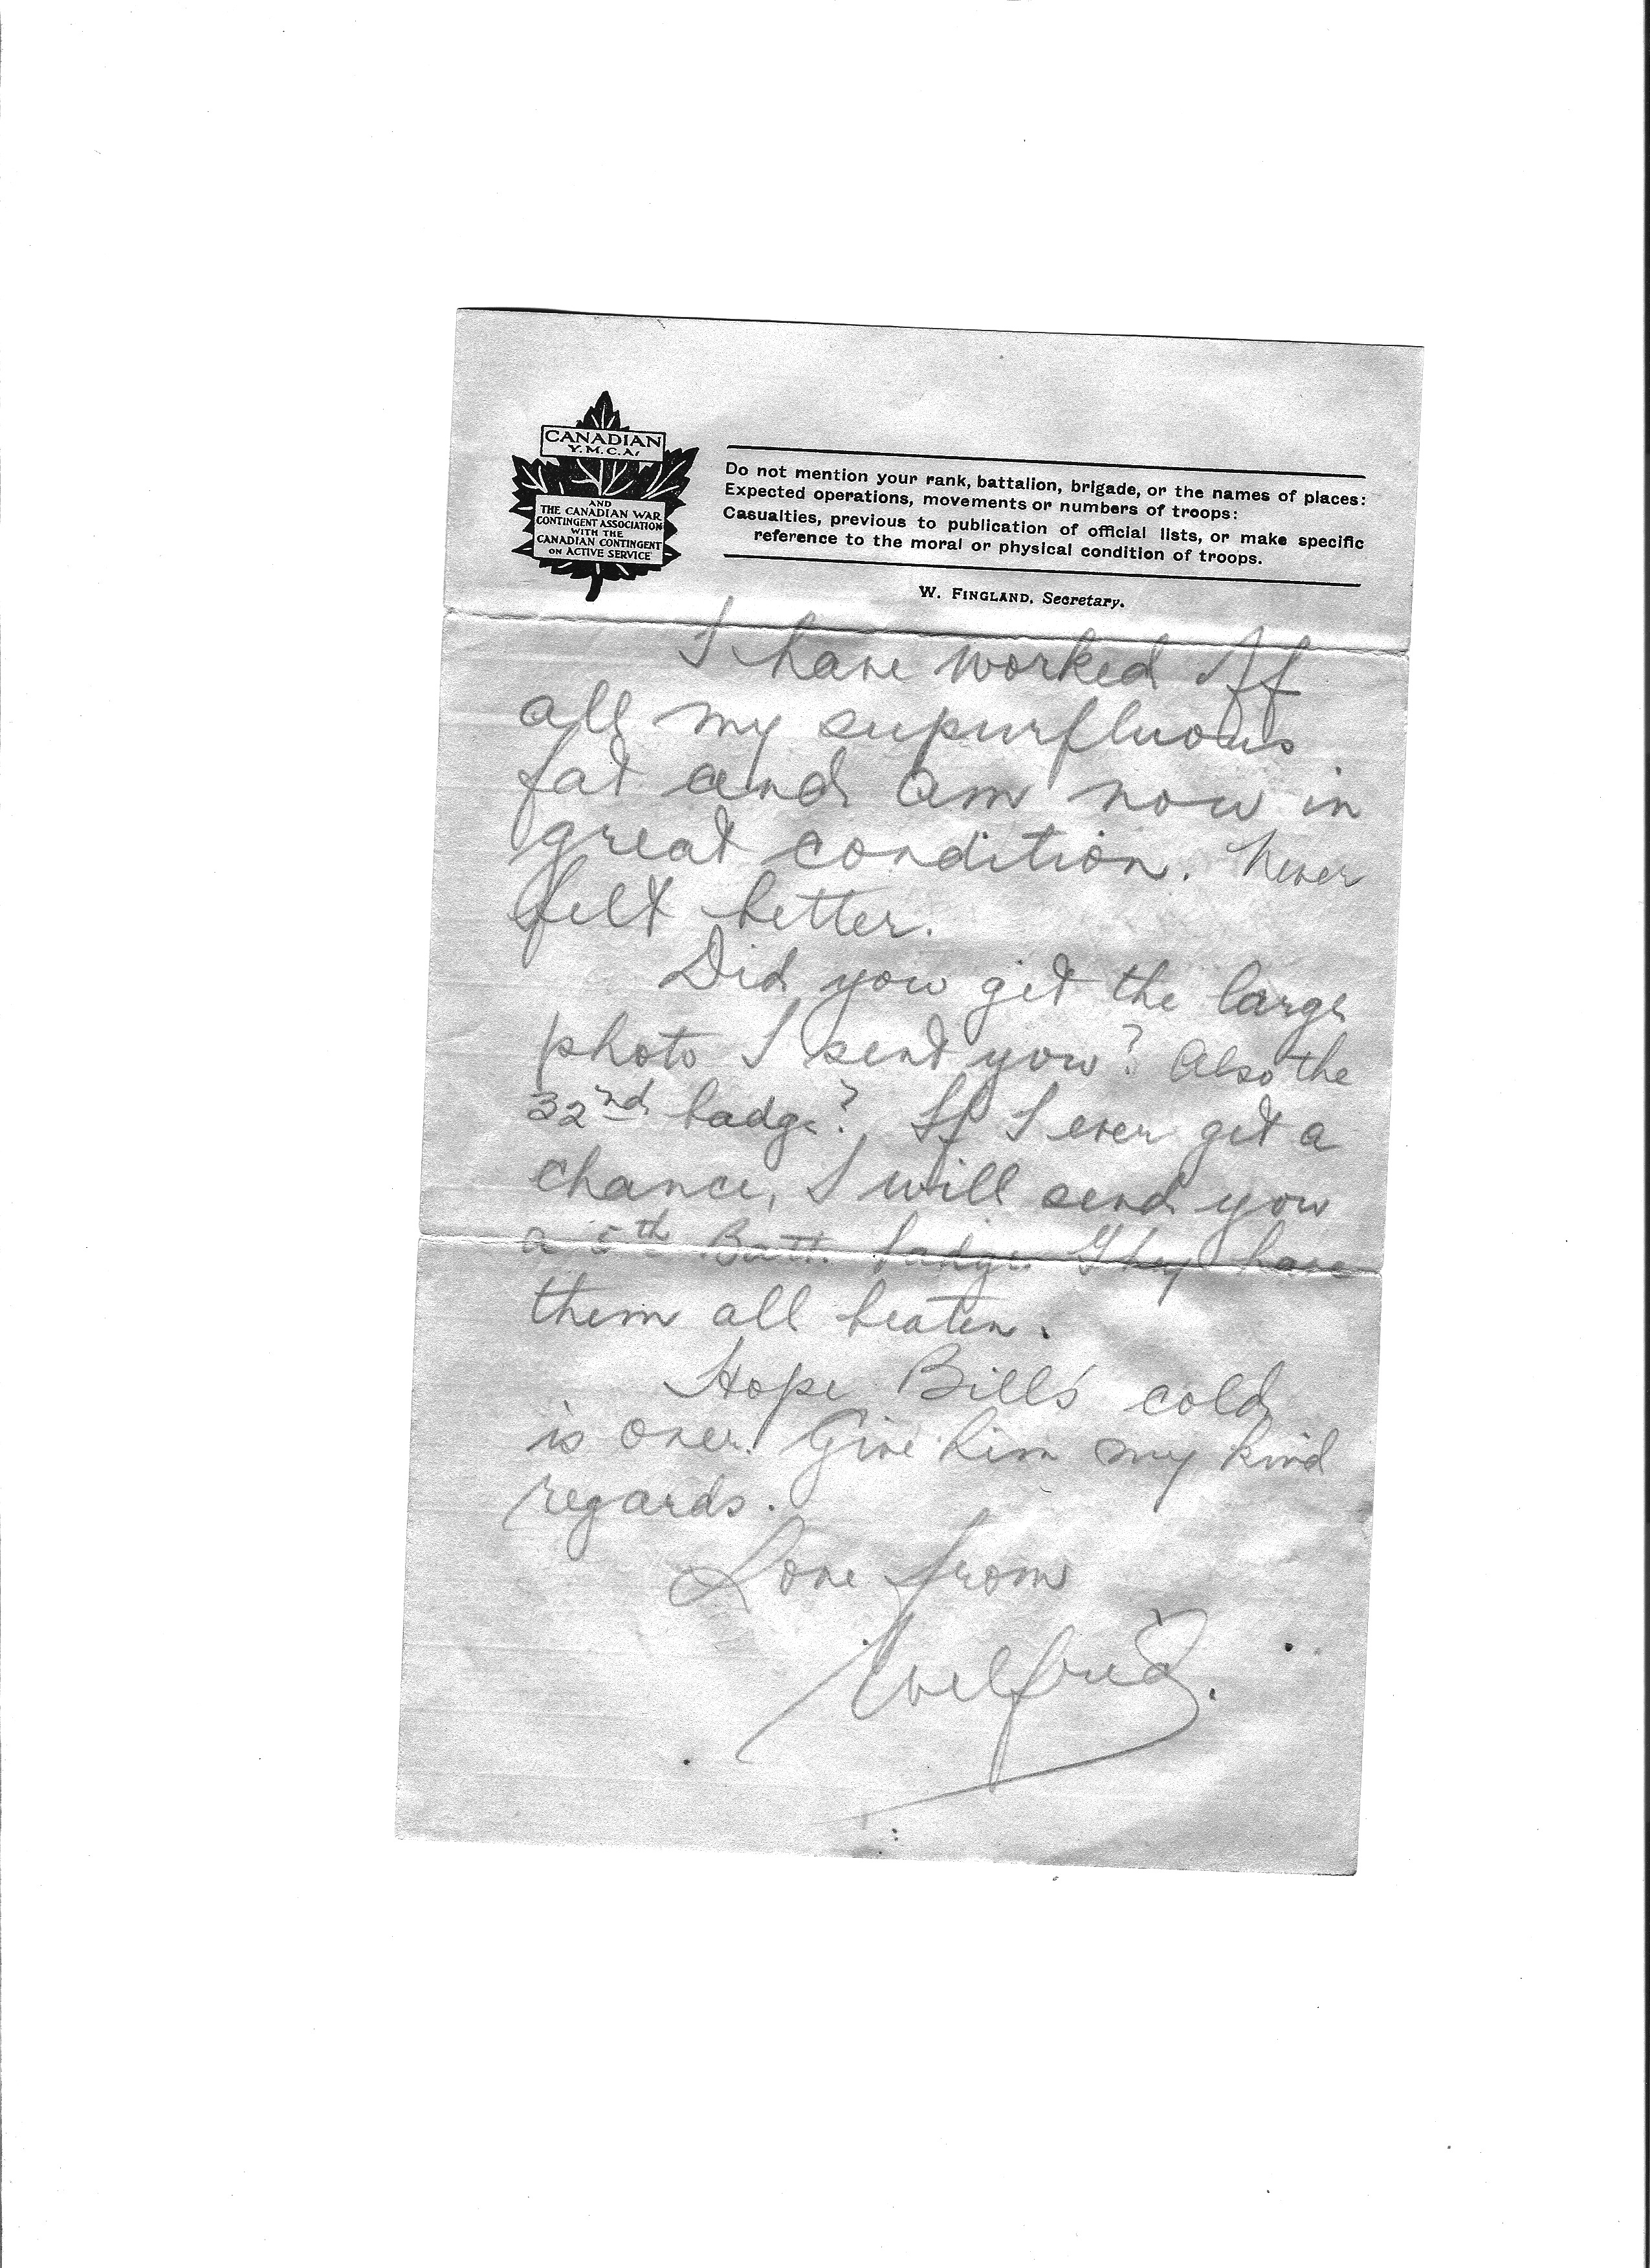 CANADIAN
Y.M.C.A.
AND
THE CANADIAN WAR
CONTINGENT ASSOCIATION
WITH THE
CANADIAN CONTINGENT
ON ACTIVE SERVICE
Do not mention your rank, battalion, brigade, or the names of places:
Expected operations, movements or numbers of troops:
Casualties, previous to publication of official lists, or make specific
reference to the moral or physical condition of troops.
W. FINGLAND, Secretary.
I have worked off
all my supurfluous
fat and am now in
great condition. Never
felt better.
Did you get the large
photo I sent you? Also the
32nd badge? If I ever get a
chance, I will send you
a 5th Batt. badge. They have
them all beaten.
Hope Bill's cold
is over. Give him my kind
regards.
Love from
Wilfred.